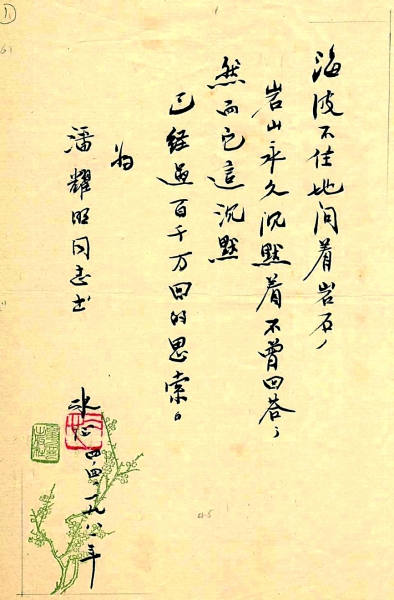 海波不住地问着岩石，
岩山永久沉默着不曾回答；
然而它這沉默
已经過百千万回的思索。
为
潘耀明同志书
冰心 四、四、一九八一年
1